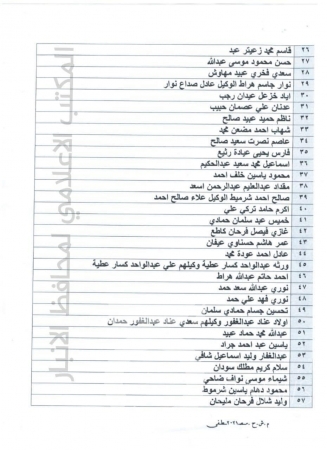 ٢٦ قاسم محمد زعيتر عبد
٢٧ حسن محمود موسى عبدالله
٢٨ سعدي فخري عبيد مهاوش
٢٩ نوار جاسم هراط الوكيل عادل صداع نوار
٣٠ اياد خزعل عبدان رجب
٣١ عدنان علي عصمان حبيب
٣٢ ناظم حميد عبيد صالح
٣٣ شهاب احمد مضعن محمد
٣٤ عاصم نصرت سعيد صالح
٣٥ فارس يحيى عيادة ربيع
٣٦ اسماعيل محمد سعيد عبدالحكيم
٣٧ محمود ياسين خلف احمد
٣٨ مقداد عبدالعليم عبدالرحمن اسعد
٣٩ صالح احمد شرميط الوكيل علاء صالح احمد
٤٠ اكرم حامد تركي علي
٤١ خميس عبد سلمان حمادي
٤٢ غازي فيصل فرحان كاطع
٤٣ عمر هاشم حسناوي عيفان
٤٤ عادل احمد عودة محمد
٤٥ ورثه عبدالواحد كسار عطية وكيلهم علي عبدالواحد كسار عطية
٤٦ احمد حاتم عبدالله هراط
٤٧ نوري عبدالله سعد حمد
٤٨ نوري فهد علي حمد
٤٩ تحسين جسام حمادي سلمان
٥٠ اولاد عناد عبدالغفور وكيلهم سعدي عناد عبدالغفور حمدان
٥١ عبدالله محمد حماد عبيد
٥٢ ياسين عبد احمد جراد
٥٣ عبدالغفار وليد اسماعيل شافي
٥٤ سلام كريم مطلك سودان
٥٥ شيماء موسى نواف ضاحي
٥٦ محمود دهام ياسين شرموط
٥٧ وليد شلال فرحان مليحان
المكتب الاعلامي لمحافظ الانبار